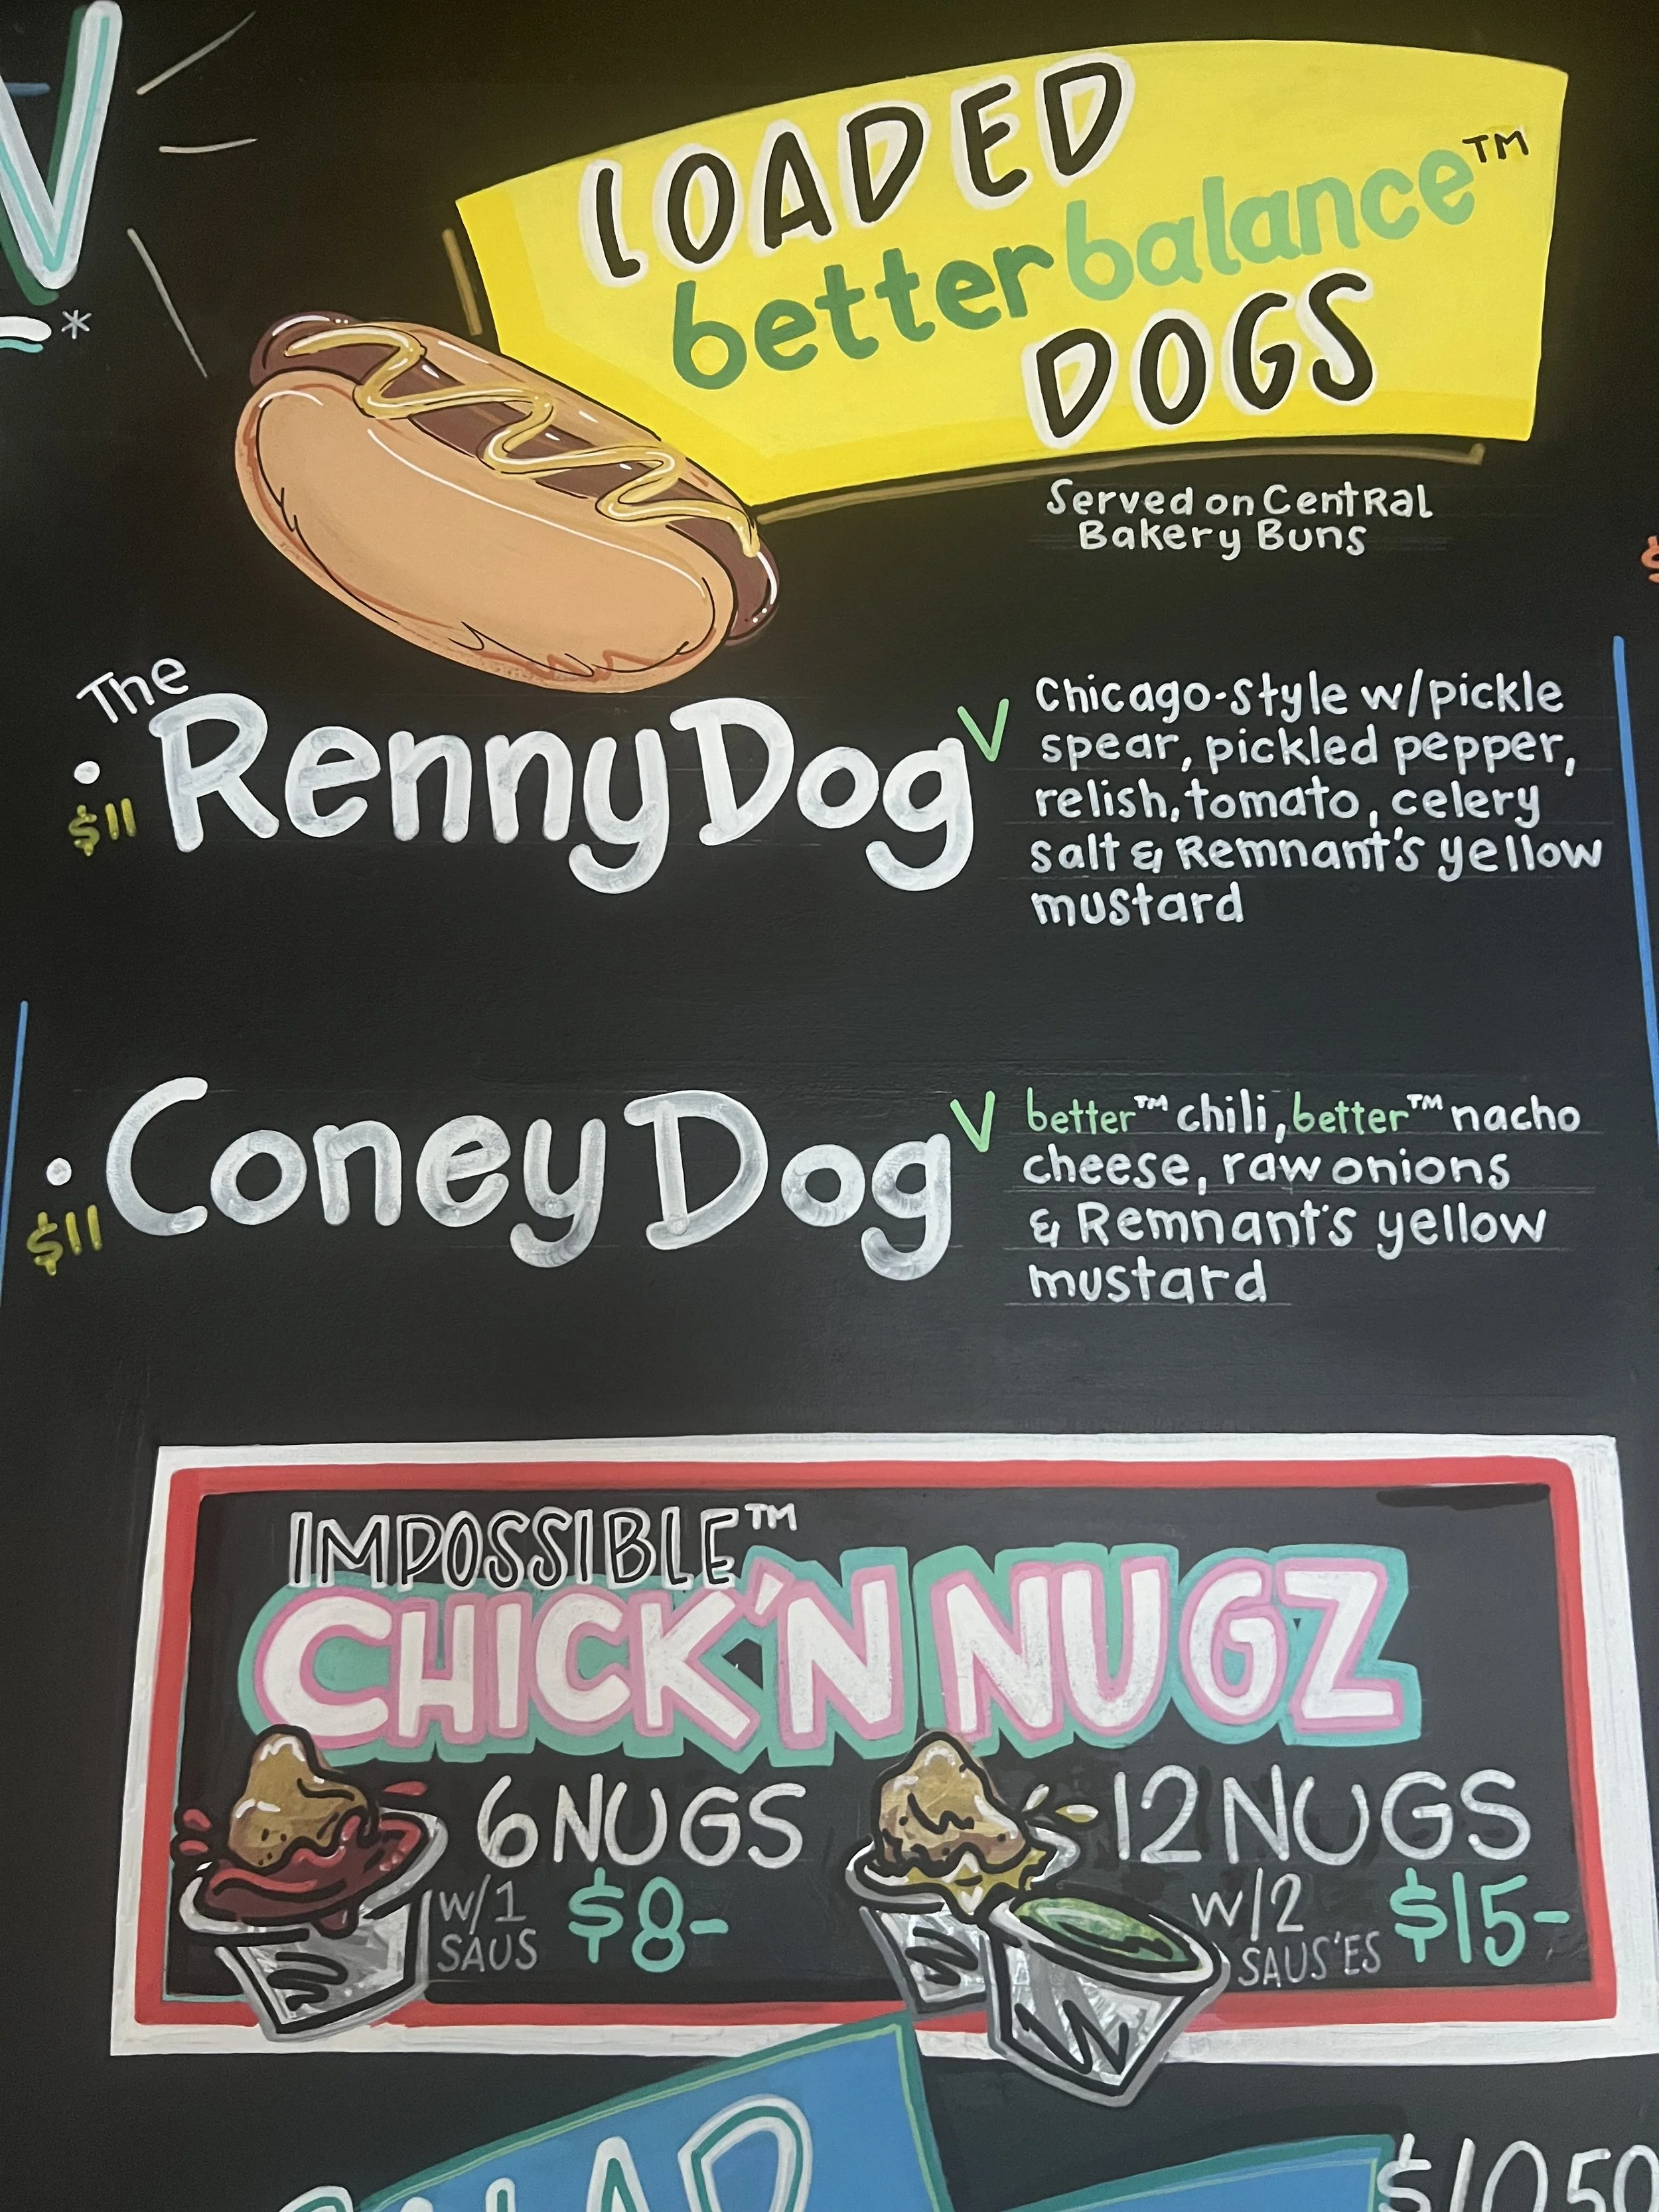 LOADED
betterbalance™
DOGS
Served on Central
Bakery Buns
The
• Renny Dog V
$11
Chicago-style w/pickle
spear, pickled pepper,
relish, tomato, celery
salt & Remnant's yellow
mustard
• Coney Dog V
$11
better™ chili, better™ nacho
cheese, raw onions
& Remnant's yellow
mustard
IMPOSSIBLE™
CHICK'N NUGZ
6 NUGS
w/1
SAUS
$8-
12 NUGS
w/2
SAUS'ES
$15-
$10.50